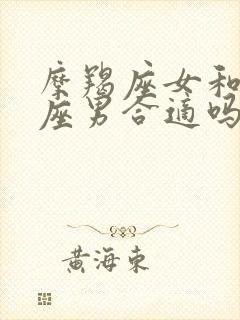 摩羯座女和
座男合适吗
黄海东